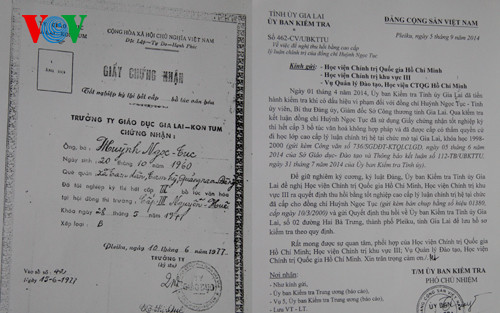 VOV
SỞ GIÁO DỤC
GIA LAI
KON TUM
CỘNG HÒA XÃ HỘI CHỦ NGHĨA VIỆT NAM
Độc Lập Tự Do Hạnh Phúc
GIẤY CHỨNG NHẬN
Tốt nghiệp kỳ thi hết cấp bổ túc văn hóa
TRƯỞNG TY GIÁO DỤC GIA LAI - KON TUM
CHỨNG NHẬN:
Ông, bà: Huỳnh Ngọc Tục
Ngày 20 tháng 10 1960
Quê quán
Đã tốt nghiệp kỳ thi hết cấp III bổ túc văn hóa
tại hội đồng thi trường cấp III Nguyễn Huệ
Khóa ngày 28 tháng 5
Xếp loại B
Pleiku, ngày 10 tháng 6 1977
TRƯỞNG TY
Vào sổ số 421
Ngày 15-6-1977
TỈNH ỦY GIA LAI
ỦY BAN KIỂM TRA
ĐẢNG CỘNG SẢN VIỆT NAM
Số 462-CV/UBKTTU
Về việc đề nghị thu hồi bằng cao cấp
lý luận chính trị của đồng chí Huỳnh Ngọc Tục
Pleiku, ngày 3 tháng 9 năm 2014
Kính gửi: - Học viện Chính trị Quốc gia Hồ Chí Minh
- Học viện Chính trị khu vực III
- Vụ Quản lý Đào tạo, Học viện CTQG Hồ Chí Minh
Ngày 01 tháng 4 năm 2014, Ủy ban Kiểm tra Tỉnh ủy Gia Lai đã tiến
hành kiểm tra khi có dấu hiệu vi phạm đối với đồng chí Huỳnh Ngọc Tục - Tỉnh
ủy viên, Bí thư Đảng ủy, Giám đốc Sở Công thương tỉnh Gia Lai. Qua kiểm tra
kết luận đồng chí Huỳnh Ngọc Tục đã sử dụng Giấy chứng nhận tốt nghiệp kỳ
thi hết cấp 3 bổ túc văn hóa không hợp pháp và để được cấp có thẩm quyền cử
đi học lớp cao cấp lý luận chính trị hệ tại chức mở tại Gia Lai, khóa học 1998-
2000 (gửi kèm Công văn số 736/SGDĐT-KTQLCLGD, ngày 03 tháng 6 năm
2014 của Sở Giáo dục- Đào tạo và Thông báo kết luận số 112-TB/UBKTTU,
ngày 31 tháng 7 năm 2014 của Ủy ban Kiểm tra Tỉnh ủy).
Để giữ nghiêm kỷ cương, kỷ luật Đảng, Ủy ban Kiểm tra Tỉnh ủy Gia Lai
đề nghị Học viện Chính trị Quốc gia Hồ Chí Minh, Học viện Chính trị khu vực
III ra quyết định thu hồi bằng tốt nghiệp cao cấp lý luận chính trị hệ tại chức
đã cấp cho đồng chí Huỳnh Ngọc Tục (gửi kèm bản chụp bằng số hiệu 01160,
cấp ngày 10/3/2000) và gửi Quyết định thu hồi về Ủy ban Kiểm tra Tỉnh ủy Gia
Lai, số 02 đường Hai Bà Trưng, thành phố Pleiku, tỉnh Gia Lai để lưu hồ sơ
kiểm tra theo quy định.
Rất mong được sự quan tâm, phối hợp của Học viện Chính trị Quốc gia Hồ
Chí Minh; Học viện Chính trị khu vực III; Vụ Quản lý Đào tạo, Học viện Chính
trị Quốc gia Hồ Chí Minh. Xin trân trọng cảm ơn./.
Nơi nhận:
- Như kính gửi,
- Ủy ban Kiểm tra Trung ương (báo cáo),
- Vụ 5, Ủy ban Kiểm tra Trung ương (báo cáo),
- Lưu VT - LT.
T/M ỦY BAN KIỂM TRA
PHÓ CHỦ NHIỆM